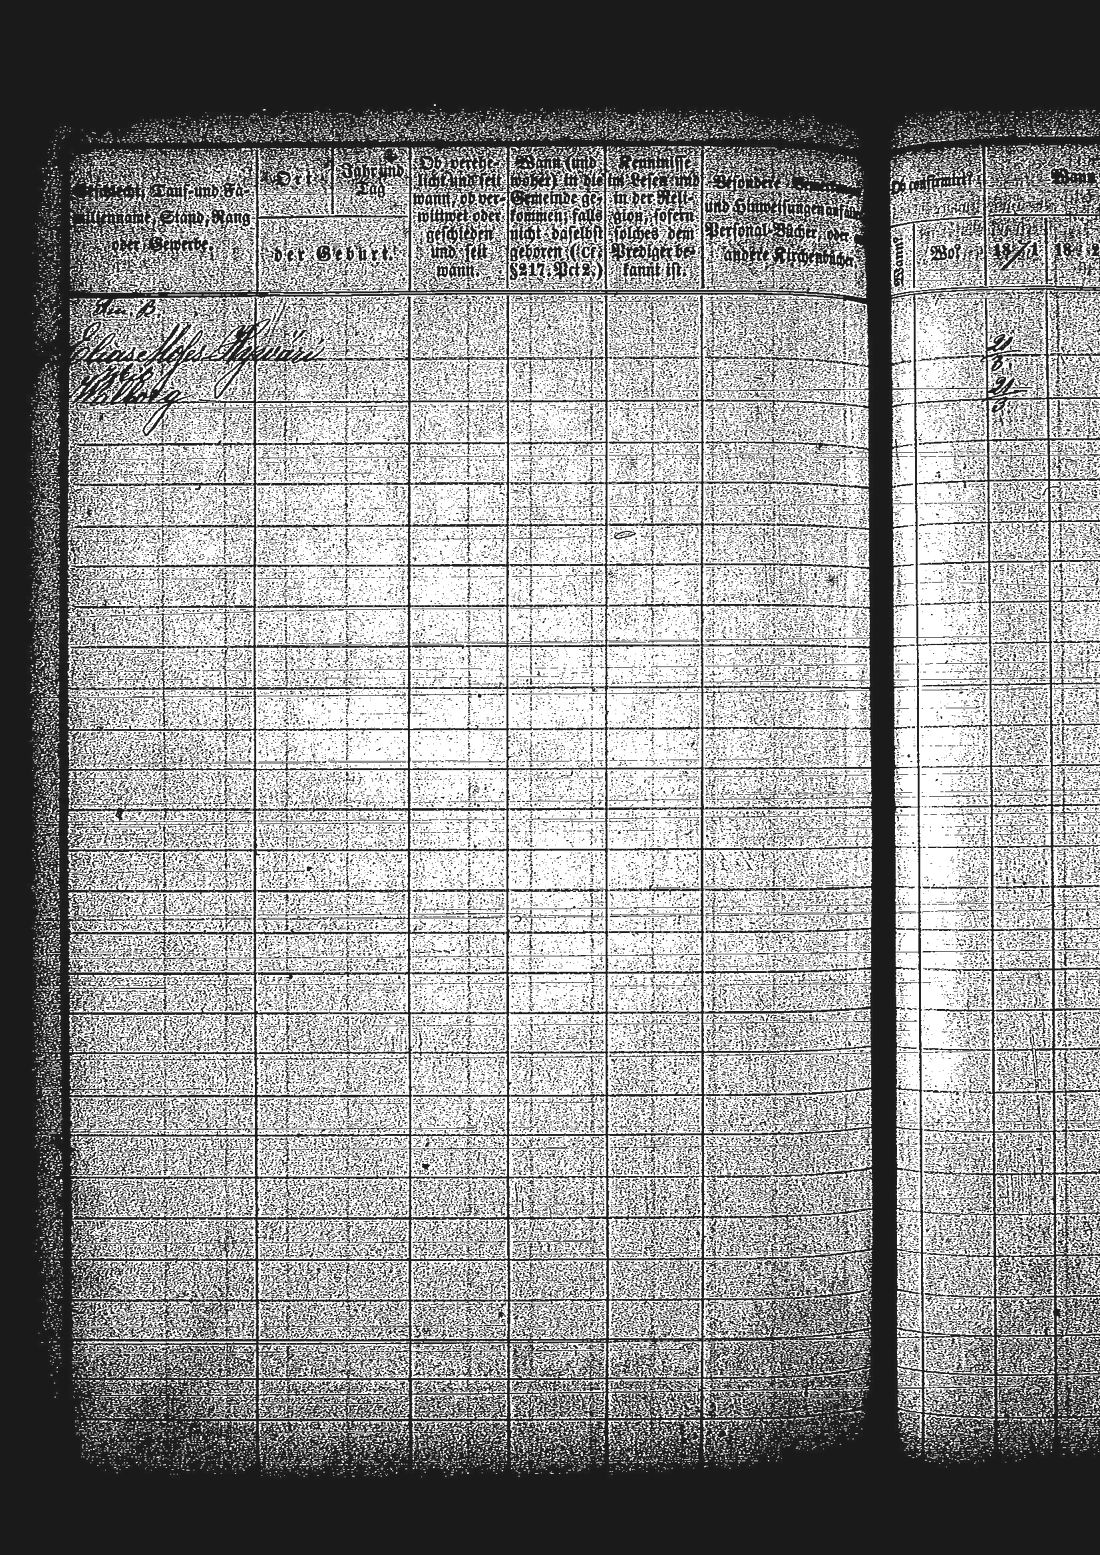 Geschlecht, Tauf- und Fa-
milienname, Stand, Rang
oder Gewerbe.
Ort
Jahr und
Tag
der Geburt.
Ob verehe-
licht und seit
wann, ob ver-
wittwet oder
geschieden
und seit
wann.
Wann (und
woher) in die
Gemeinde ge-
kommen; falls
nicht daselbst
geboren (Cf.
§217. Pct 2.)
Kenntnisse
im Lesen und
in der Reli-
gion, sofern
solches dem
Prediger be-
kannt ist.
Besondere Bemerkungen
und Hinweisungen auf alte
Personal-Bücher, oder
andere Kirchenbücher.
Ob confirmirt?
Wann?
Wo?
Wann
18 1
18
Elias Moses
21
3
21
3